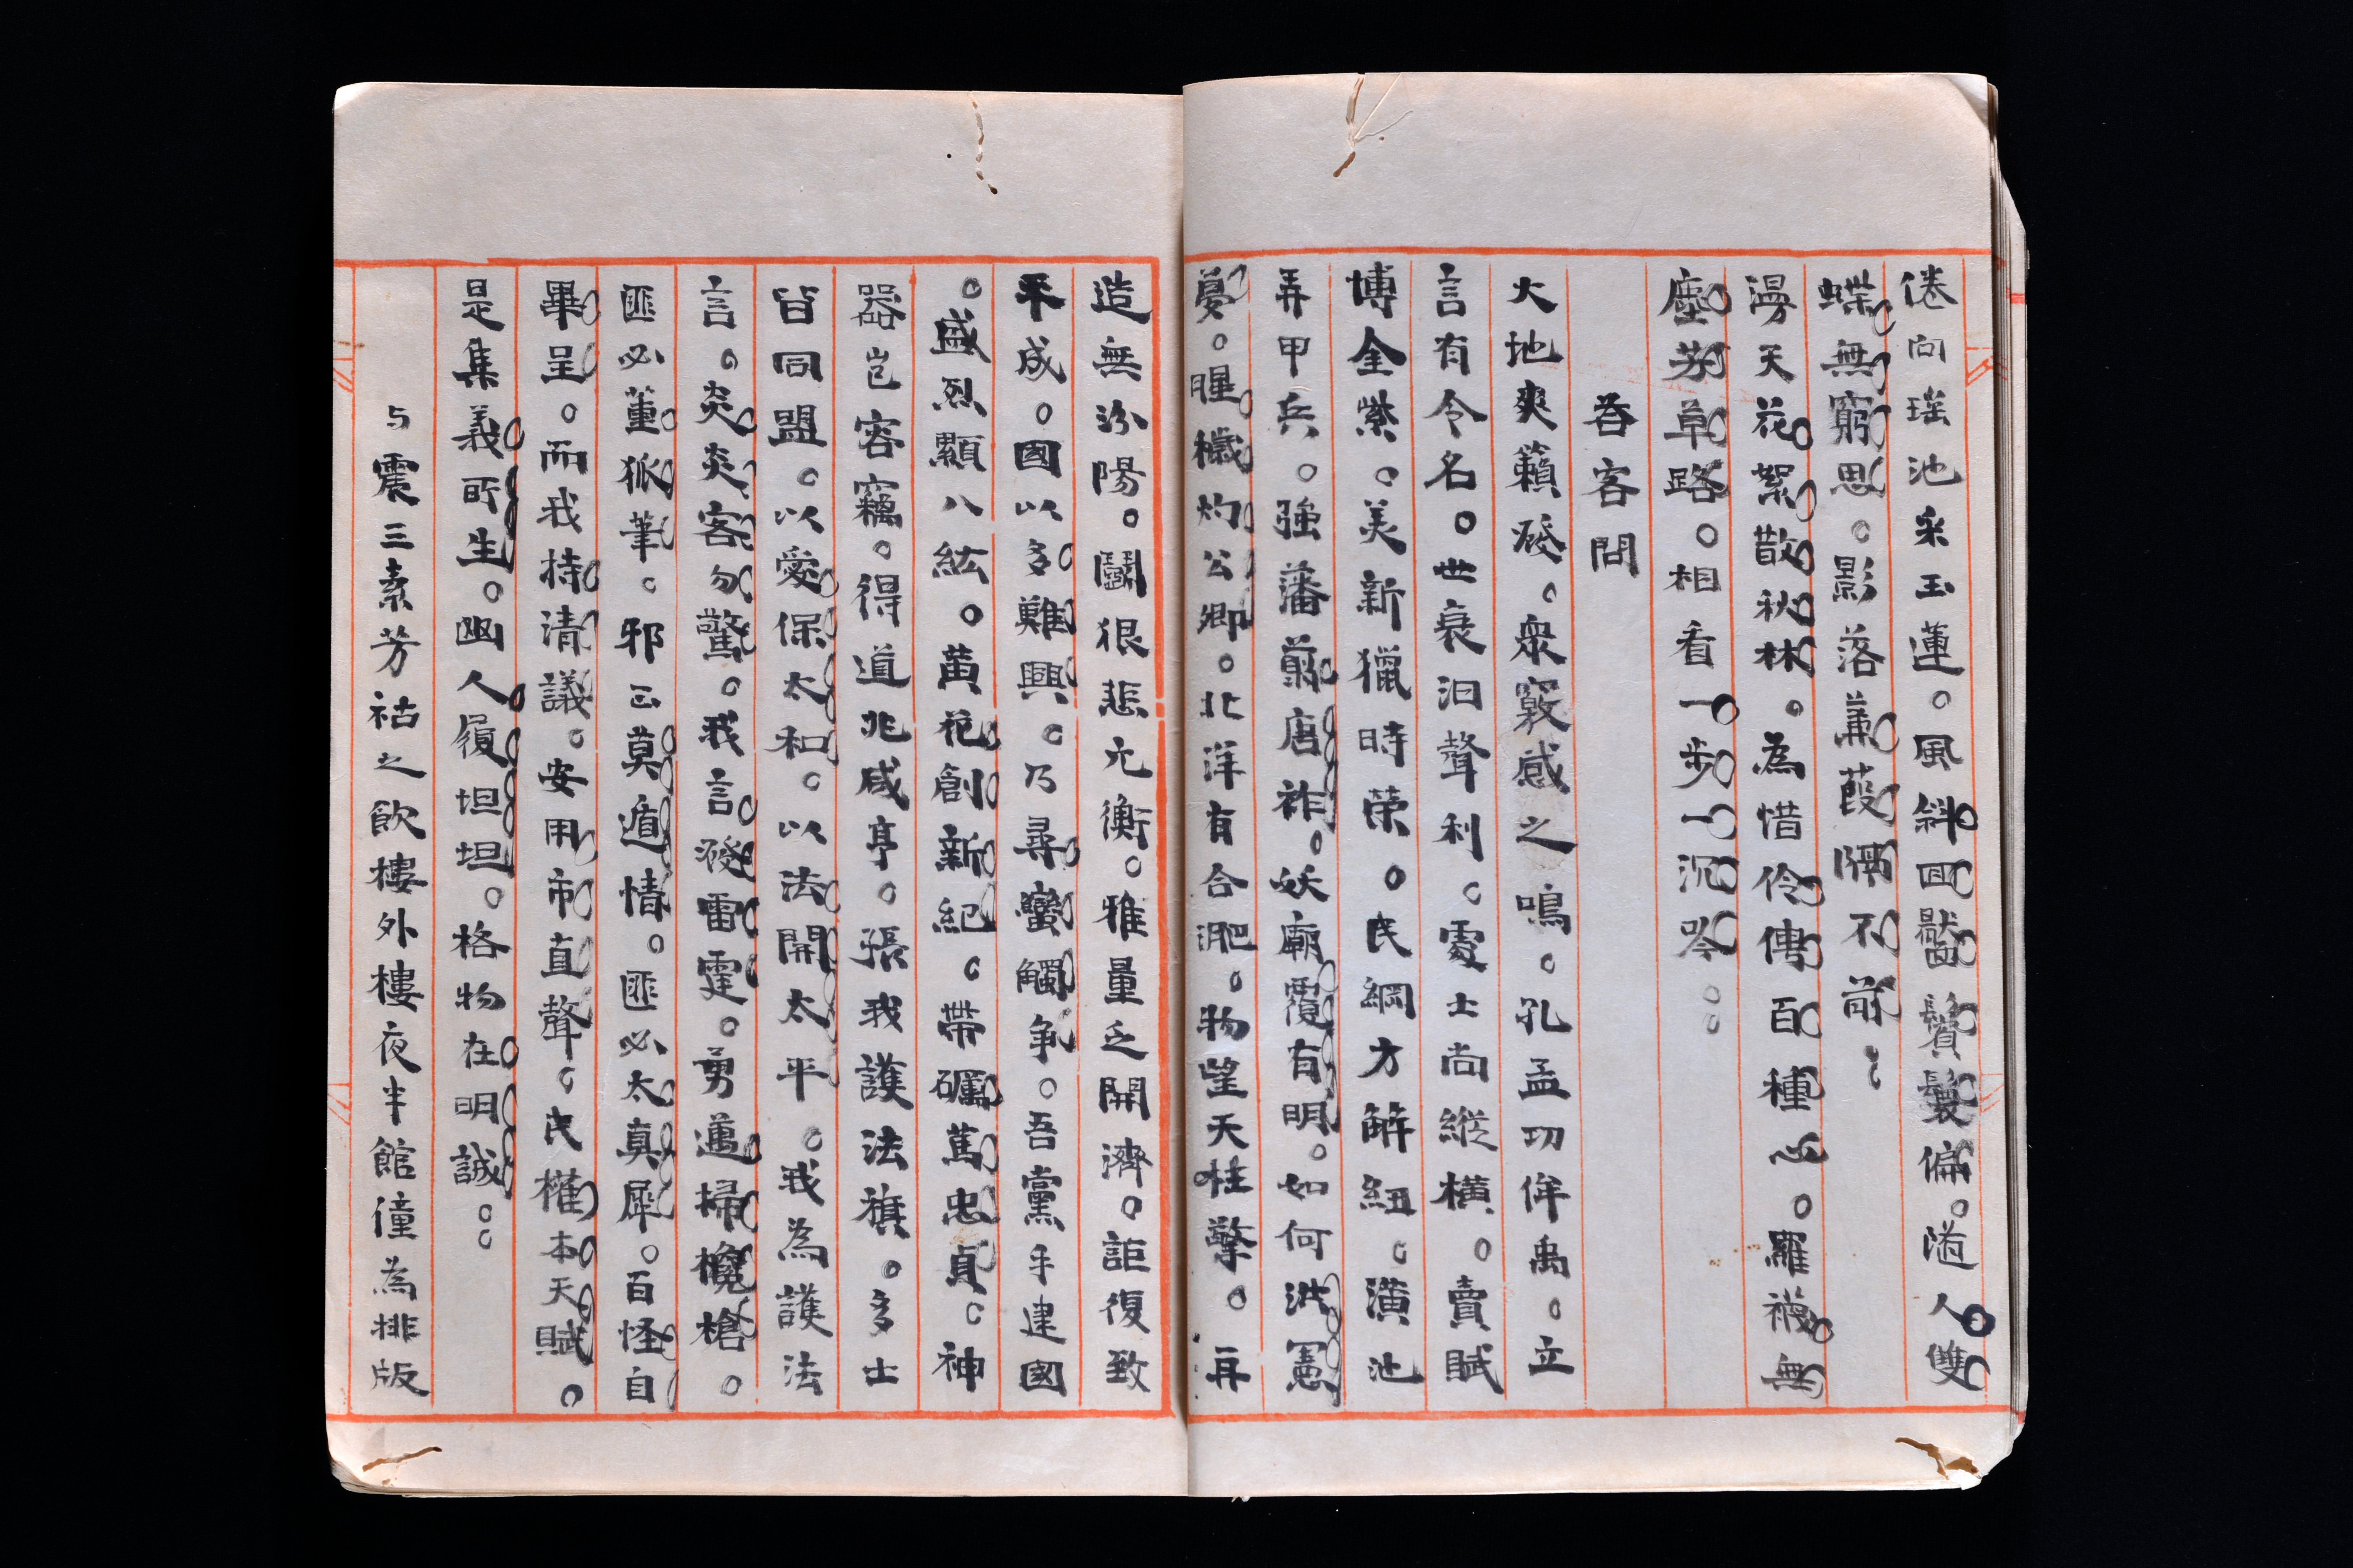 倦向瑤池采玉蓮。風斜回鬟鬢鬖偏。隨人雙
蝶無窮思。影落蒹葭隔不前。
漫天花絮散秋林。為惜伶俜百種心。羅襪無
塵芳草路。相看一步一沉吟。
荅客問
大地爽籟發。衆竅感之鳴。孔孟功侔禹。立
言有令名。世衰汩聲利。處士尚縱橫。賣賦
博金紫。美新獵時榮。民綱方解紐。潢池
弄甲兵。強藩蕆唐祚。妖廟覆有明。如何洪憲
夢。腥穢灼公卿。北洋有合肥。物望天柱擎。再
造無汾陽。鬭狠悲亢衡。雅量乏開濟。詎復致
平成。國以多難興。乃尋蠻觸爭。吾黨手建國
。盛烈顯八紘。黃花創新紀。帶礪萬忠貞。神
器豈容竊。得道兆咸亨。張我護法旗。多士
皆同盟。以愛保太和。以法開太平。我為護法
言。炎炎客勿驚。我言發雷霆。勇邁掃欃槍。
匪必董狐筆。邪正莫遁情。匪必太真犀。百怪自
畢呈。而我持清議。安用市直聲。民權本天賦。
是集義所生。幽人履坦坦。格物在明誠。
与震三素芳祜之飲樓外樓夜半館僮為排版